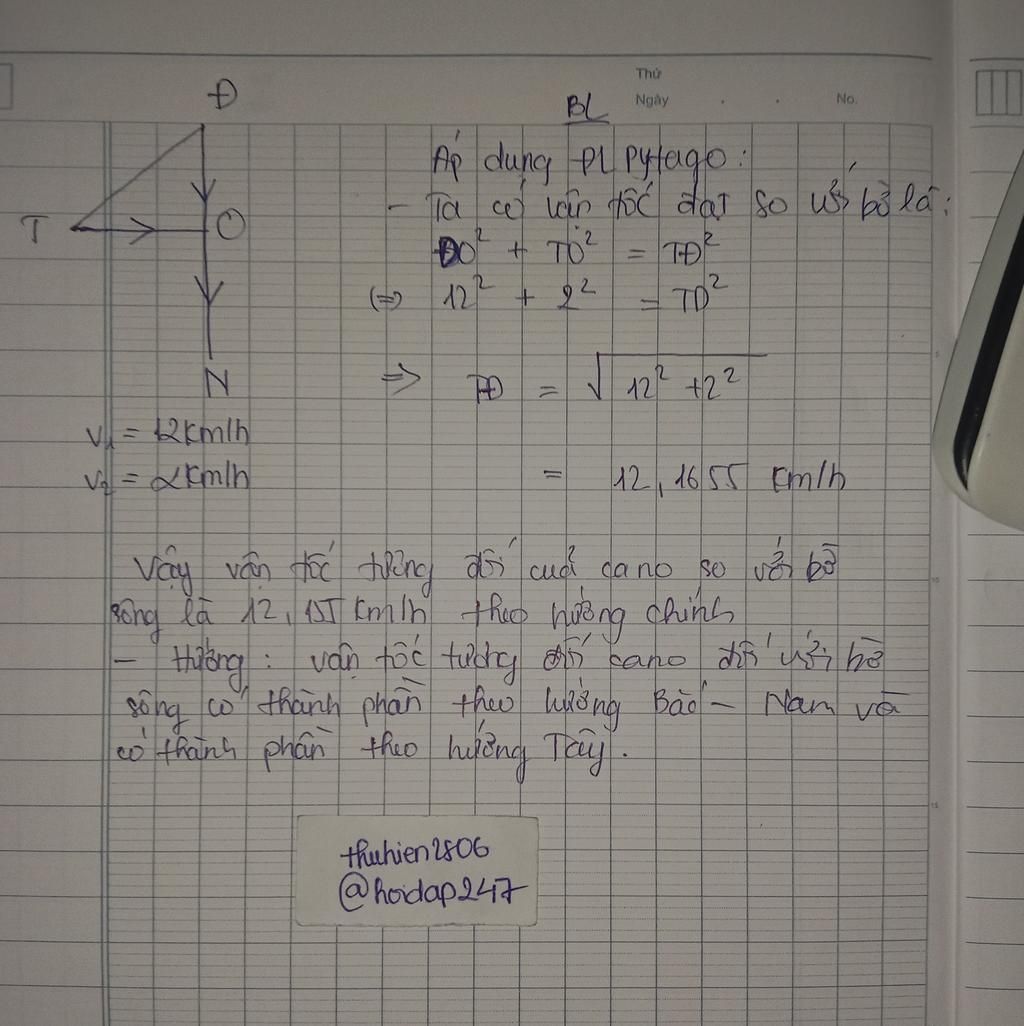 Thứ
Ngày . . No.
BL
Đ
T
O
N
Áp dụng ĐL Pytago:
- Ta có vận tốc đạt so với bờ là:
ĐO² + TO² = TĐ²
(=> 12² + 2² = TD²
=> TĐ = √12² + 2²
v₁ = 12km/h
v₂ = 2km/h
= 12,1655 km/h
Vậy vận tốc tương đối của cano so với bờ
sông là 12,155 km/h theo hướng chính
- Hướng: vận tốc tương đối cano đối với bờ
sông có thành phần theo hướng Bắc - Nam và
có thành phần theo hướng Tây.
thuhien2806
@hoidap247